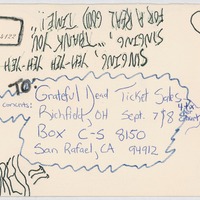 FOR A REAL GOOD TIME!
SINGING... "THANK YOU...
SINGING, YEH-YEH-YEH-YEH
TO:
concerts:
Grateful Dead Ticket Sales
Richfield, OH Sept. 7 & 8
Box C-S 8150
San Rafael, CA 94912